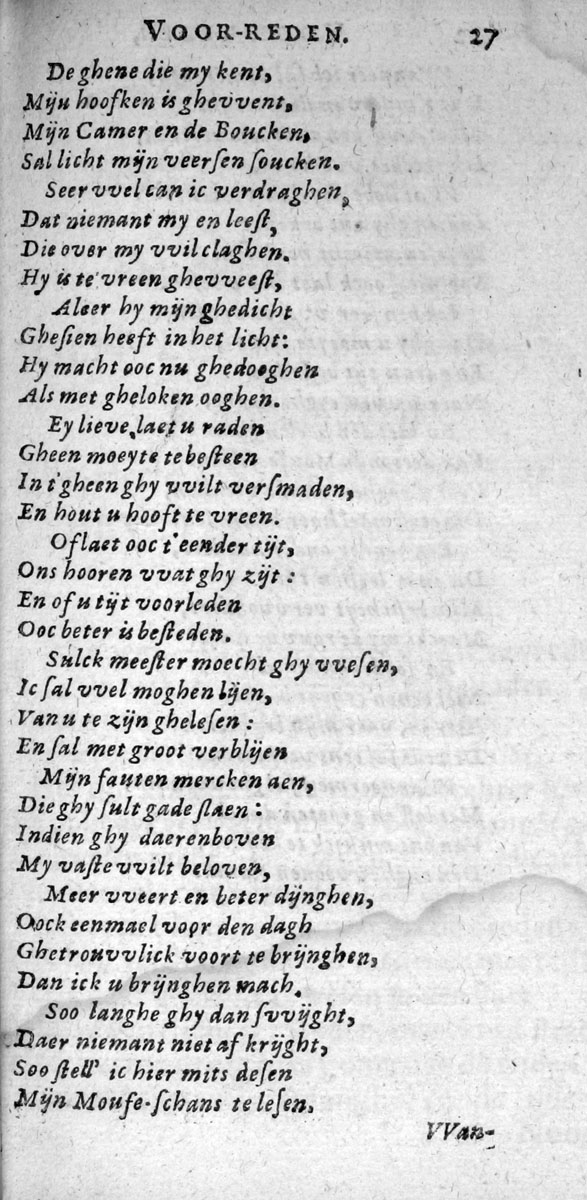 VOOR-REDEN. 27
De ghene die my kent,
Mijn hoofken is ghevvent,
Mijn Camer en de Boucken,
Sal licht mijn veerſen ſoucken.
Seer vvel can ic verdraghen,
Dat niemant my en leeſt,
Die over my vvil claghen.
Hy is te vreen ghevveeſt,
Aleer hy mijn ghedicht
Gheſien heeft in het licht:
Hy macht ooc nu ghedooghen
Als met gheloken ooghen.
Ey lieve, laet u raden
Gheen moeyte te beſteen
In t'gheen ghy vvilt verſmaden,
En hout u hooft te vreen.
Of laet ooc t'eender tijt,
Ons hooren vvat ghy zijt:
En of u tijt voorleden
Ooc beter is beſteden.
Sulck meeſter moecht ghy vveſen,
Ic ſal vvel moghen lijen,
Van u te zijn gheleſen:
En ſal met groot verblijen
Mijn fauten mercken aen,
Die ghy ſult gade ſlaen:
Indien ghy daerenboven
My vaſte vvilt beloven,
Meer vveert en beter dijnghen,
Oock eenmael voor den dagh
Ghetrouvvlick voort te brijnghen,
Dan ick u brijnghen mach.
Soo langhe ghy dan ſvvijght,
Daer niemant niet af krijght,
Soo ſtell' ic hier mits deſen
Mijn Mouſe-ſchans te leſen.
VVan-